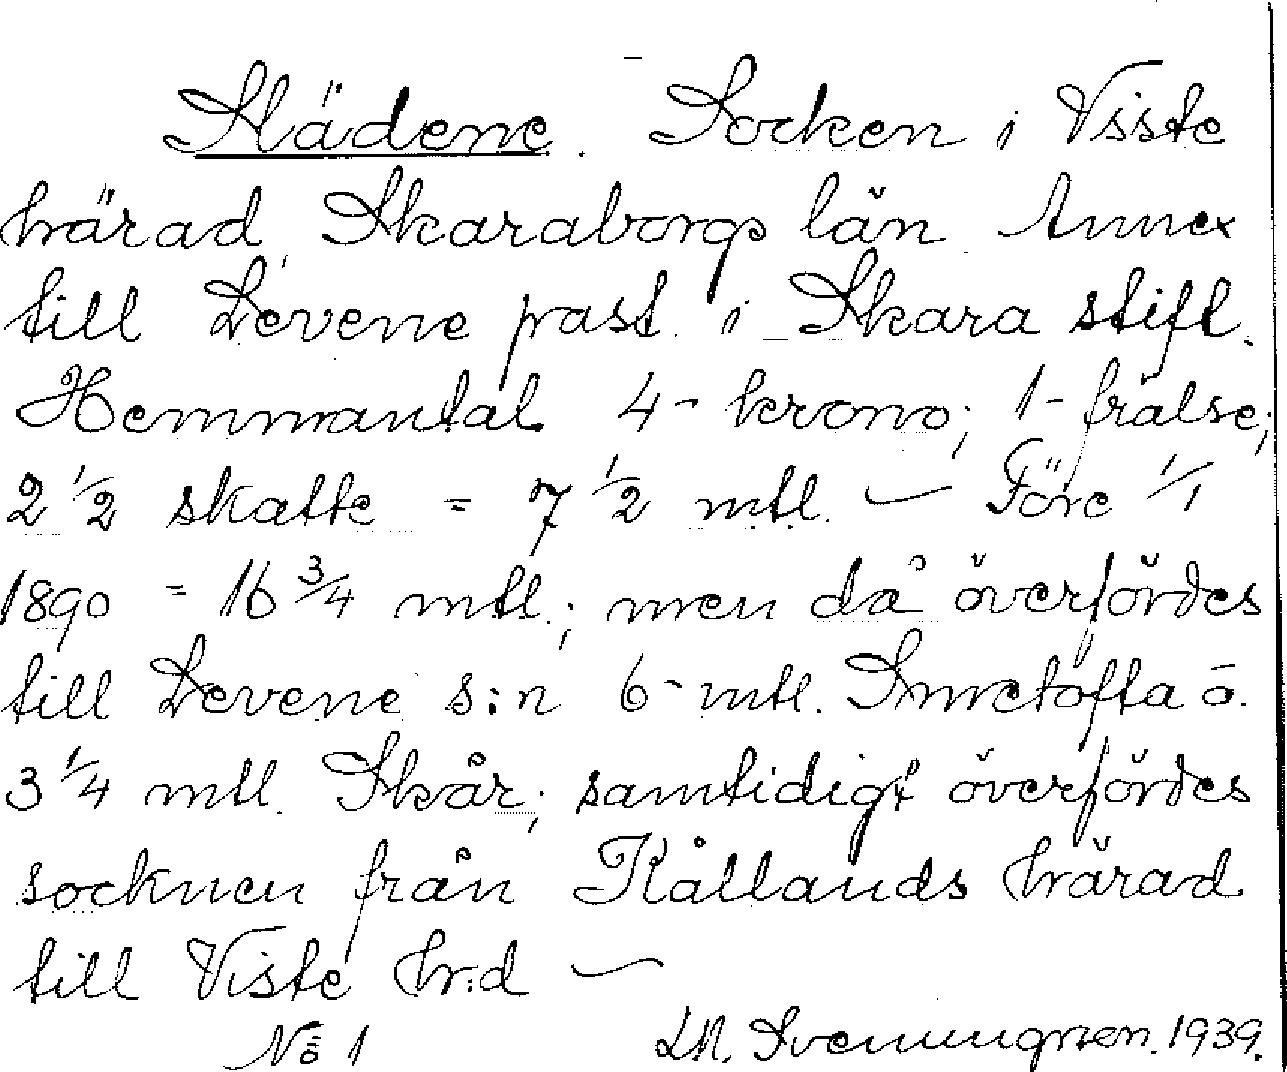 Slädene. Socken i Viste
härad, Skaraborgs län. Annex
till Levene past. i Skara stift.
Hemmantal 4- krono; 1- frälse;
2 1/2 skatte = 7 1/2 mtl. — Före 1/1
1890 = 16 3/4 mtl.; men då överfördes
till Levene s:n 6- mtl. Smetofta o.
3 1/4 mtl. Skår; samtidigt överfördes
socknen från Kållands härad
till Viste hr:d —
No 1 Svenungsson. 1939.